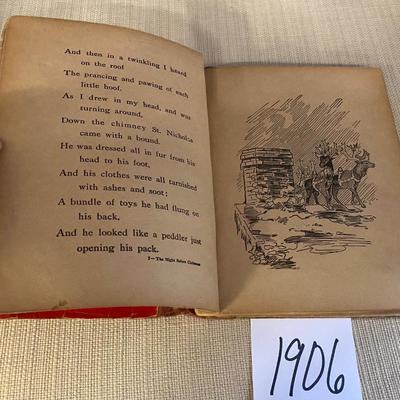 And then in a twinkling I heard
on the roof
The prancing and pawing of each
little hoof.
As I drew in my head, and was
turning around,
Down the chimney St. Nicholas
came with a bound.
He was dressed all in fur from his
head to his foot,
And his clothes were all tarnished
with ashes and soot;
A bundle of toys he had flung on
his back,
And he looked like a peddler just
opening his pack.
2—The Night Before Christmas
1906